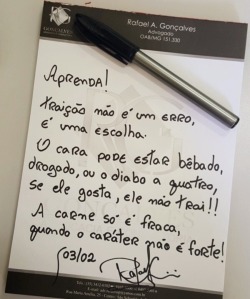 GONÇALVES
Rafael A. Gonçalves
Advogado
OAB/MG 151.330
Aprenda!
Traição não é um erro,
é uma escolha.
O cara pode estar bêbado,
drogado, ou o diabo a quatro,
se ele gosta, ele não trai!!
A carne só é fraca,
quando o caráter não é forte!
03/02